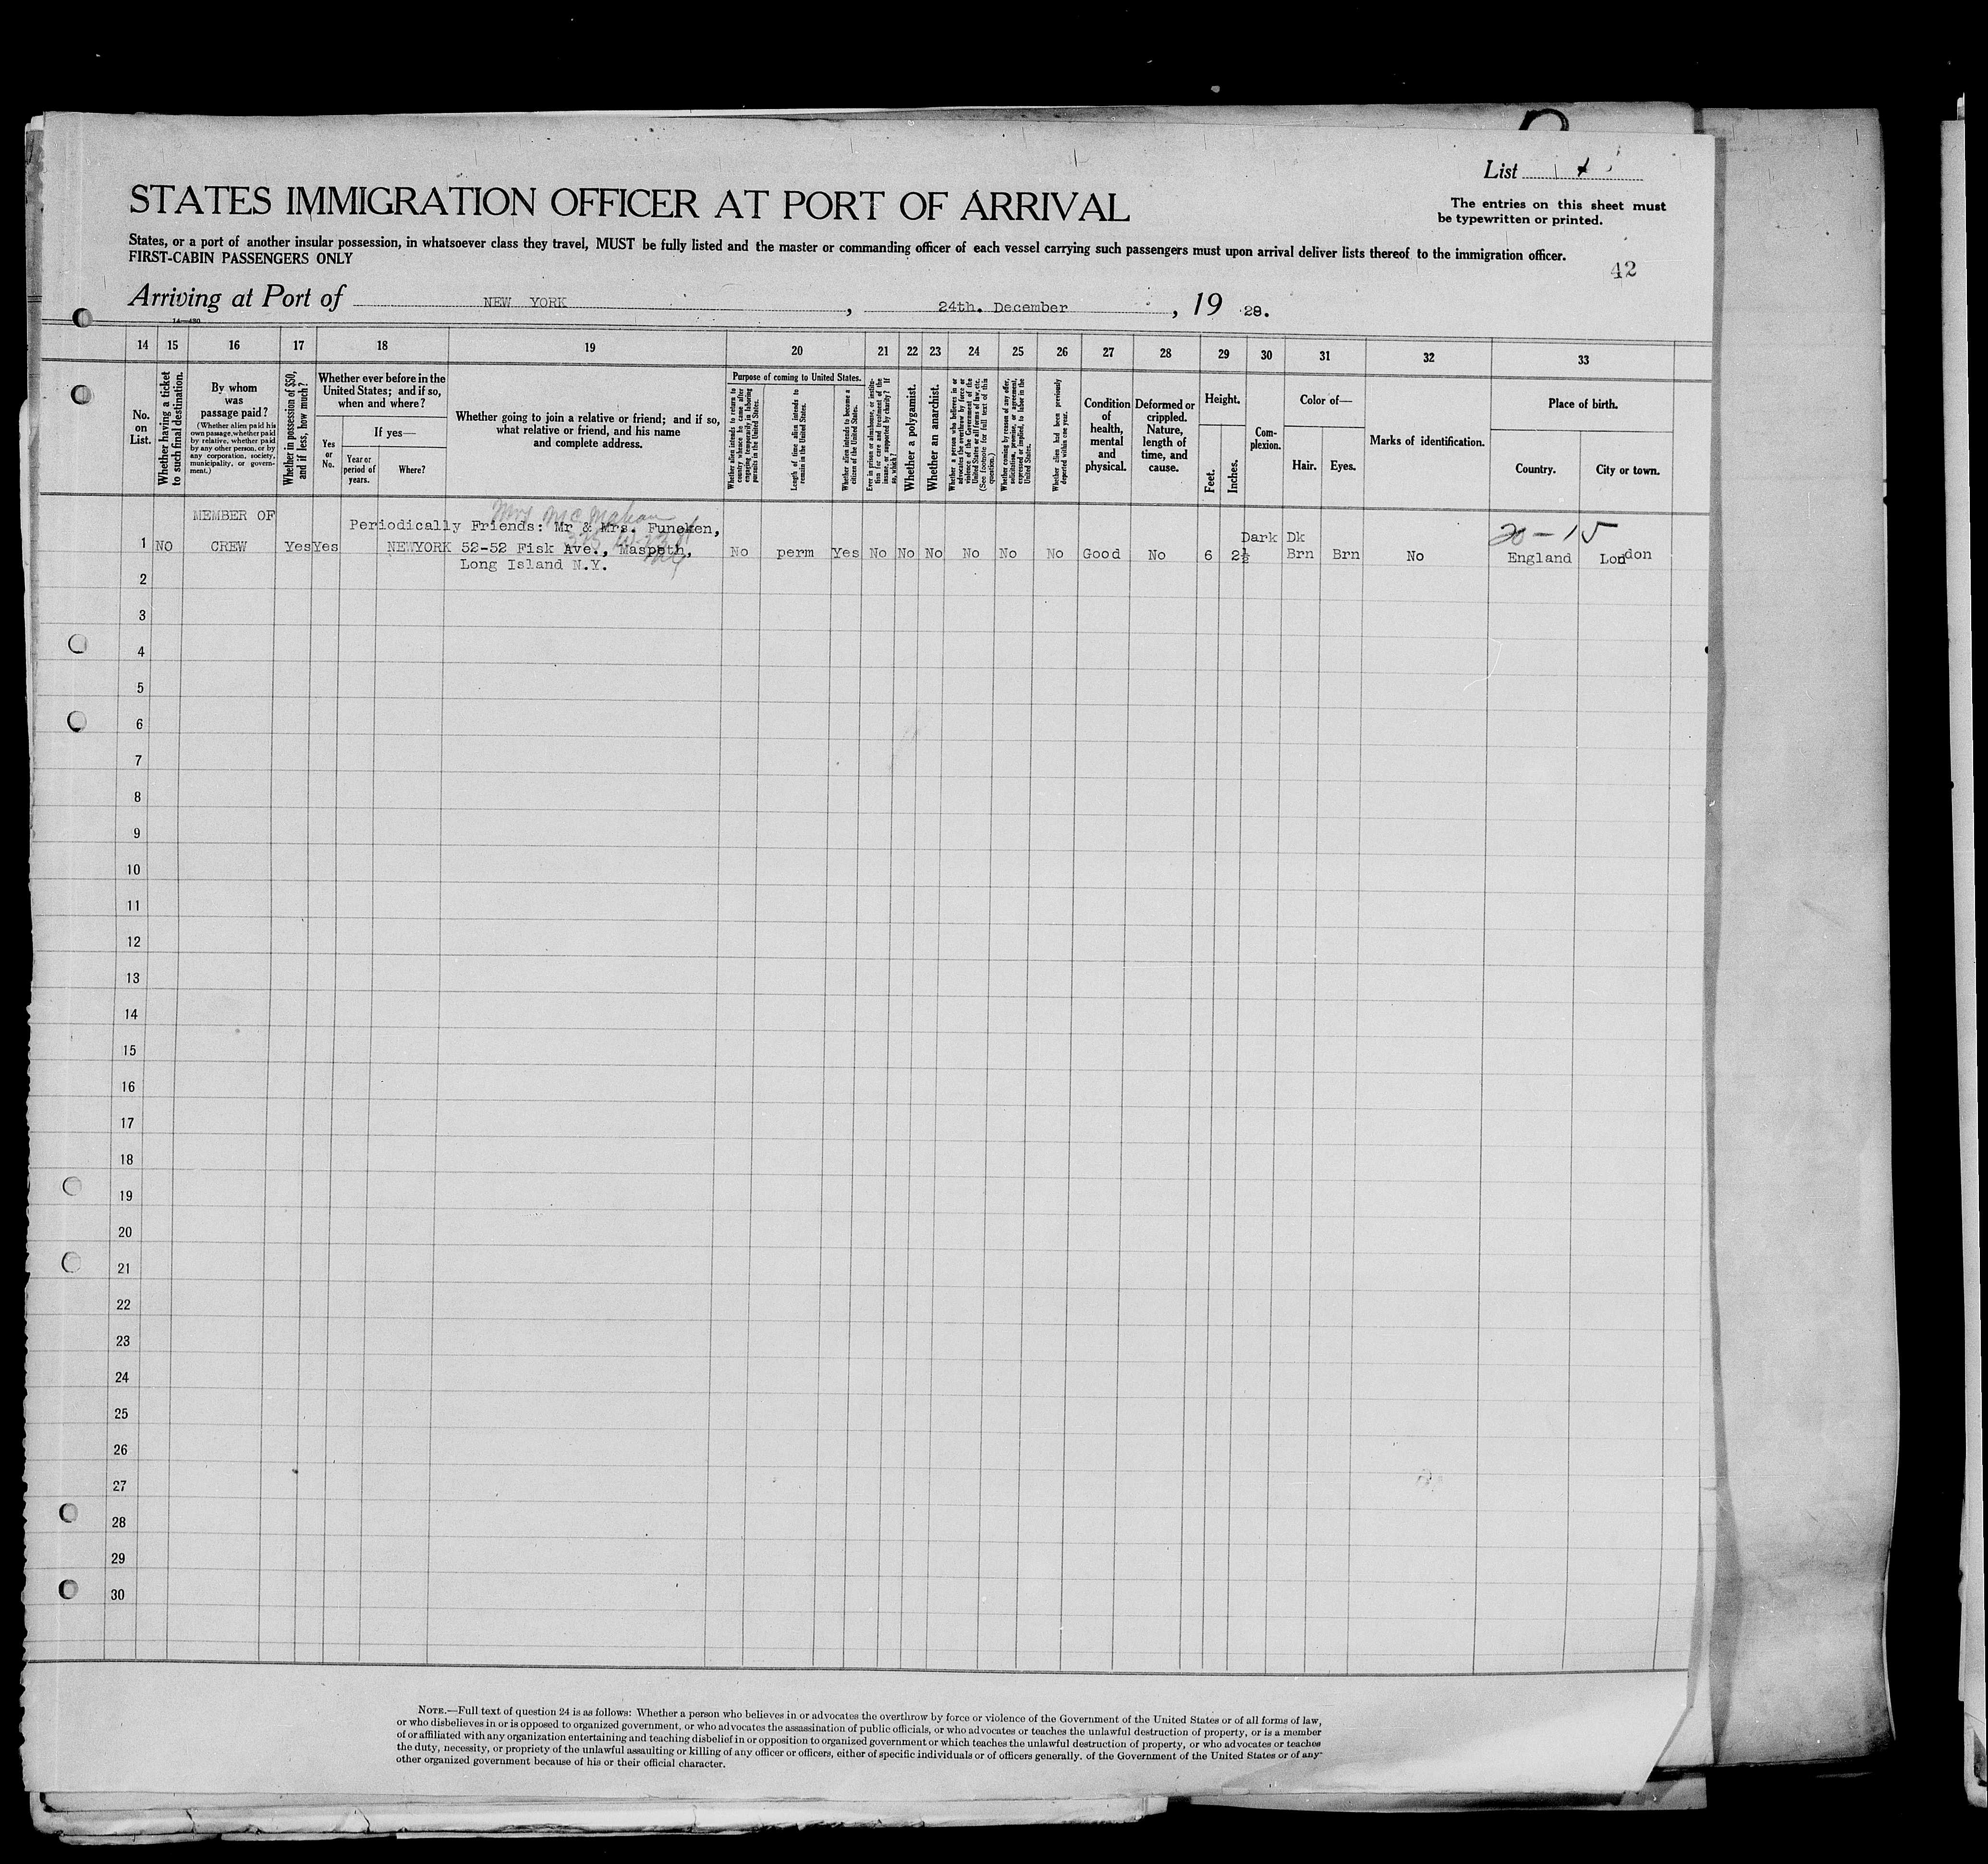 List
The entries on this sheet must
be typewritten or printed.
STATES IMMIGRATION OFFICER AT PORT OF ARRIVAL
States, or a port of another insular possession, in whatsoever class they travel, MUST be fully listed and the master or commanding officer of each vessel carrying such passengers must upon arrival deliver lists thereof to the immigration officer.
FIRST-CABIN PASSENGERS ONLY
42
Arriving at Port of NEW YORK, 24th. December, 19 28.
14 15 16 17 18 19 20 21 22 23 24 25 26 27 28 29 30 31 32 33
No. on List.
Whether having a ticket to such final destination.
By whom was passage paid?
(Whether alien paid his own passage, whether paid by relative, whether paid by any other person, or by any corporation, society, municipality, or government.)
Whether in possession of $50, and if less, how much?
Whether ever before in the United States; and if so, when and where?
Yes or No.
If yes—
Year or period of years.
Where?
Whether going to join a relative or friend; and if so, what relative or friend, and his name and complete address.
Purpose of coming to United States.
Whether alien intends to return to country whence he came after engaging temporarily in laboring pursuits in the United States.
Length of time alien intends to remain in the United States.
Whether alien intends to become a citizen of the United States.
Ever in prison or almshouse, or institution for care and treatment of the insane, or supported by charity? If so, which?
Whether a polygamist.
Whether an anarchist.
Whether a person who believes in or advocates the overthrow by force or violence of the Government of the United States or all forms of law, etc. (See footnote for full text of this question.)
Whether coming by reason of any offer, solicitation, promise, or agreement, expressed or implied, to labor in the United States.
Whether alien had been previously deported within one year.
Condition of health, mental and physical.
Deformed or crippled. Nature, length of time, and cause.
Height.
Feet.
Inches.
Complexion.
Color of—
Hair.
Eyes.
Marks of identification.
Place of birth.
Country.
City or town.
Mrs McMahon
MEMBER OF
Periodically Friends: Mr & Mrs. Funeken,
20-15
Dark Dk
1 NO CREW Yes Yes NEWYORK 52-52 Fisk Ave., Maspeth, No perm Yes No No No No No No Good No 6 2½ Brn Brn No England London
Long Island N.Y.
2
3
4
5
6
7
8
9
10
11
12
13
14
15
16
17
18
19
20
21
22
23
24
25
26
27
28
29
30
NOTE.—Full text of question 24 is as follows: Whether a person who believes in or advocates the overthrow by force or violence of the Government of the United States or of all forms of law,
or who disbelieves in or is opposed to organized government, or who advocates the assassination of public officials, or who advocates or teaches the unlawful destruction of property, or is a member
of or affiliated with any organization entertaining and teaching disbelief in or opposition to organized government or which teaches the unlawful destruction of property, or who advocates or teaches
the duty, necessity, or propriety of the unlawful assaulting or killing of any officer or officers, either of specific individuals or of officers generally, of the Government of the United States or of any
other organized government because of his or their official character.